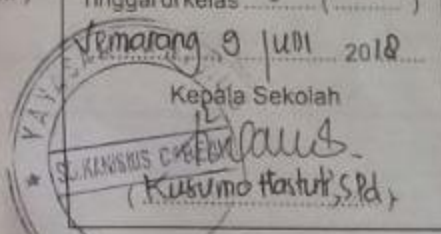 Tinggal di kelas ........ (........)
Semarang, 9 Juni 2018
Kepala Sekolah
YAYAS
SD. KANISIUS
(Kusumo Hastuti, S.Pd)